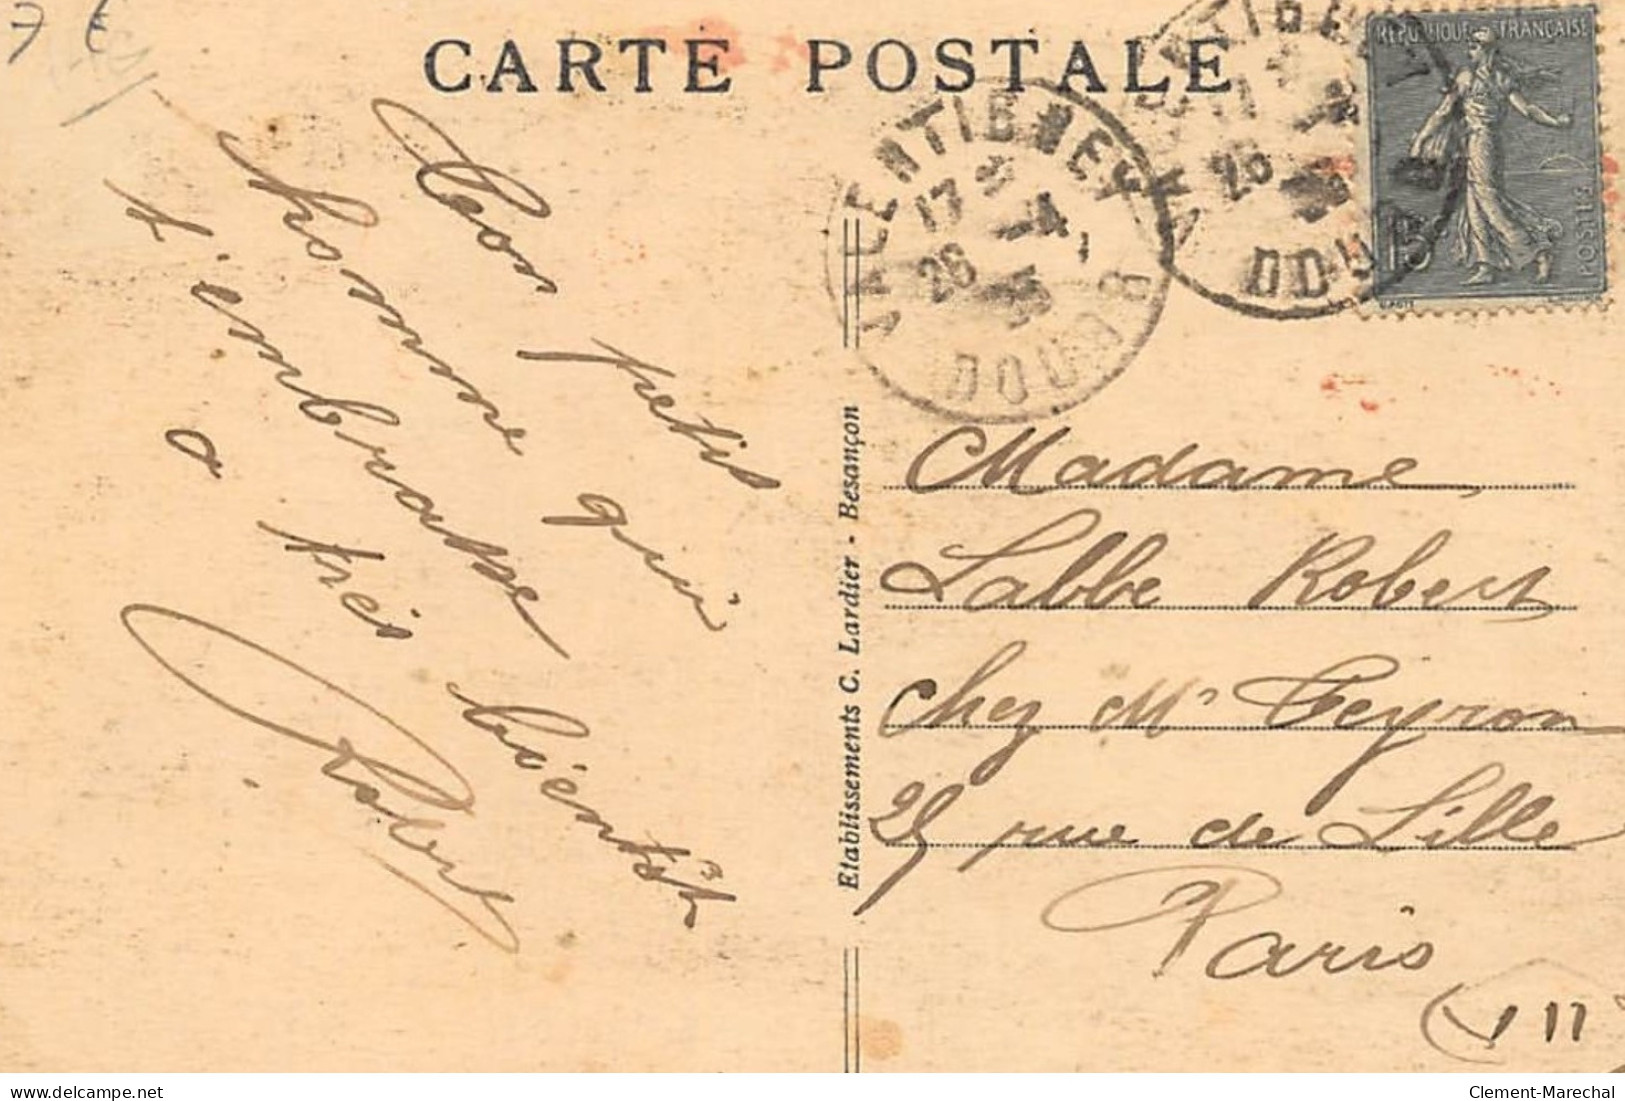 7 €
CARTE POSTALE
RÉPUBLIQUE FRANÇAISE
POSTES
15
VALENTIGNEY
17
26 -4
35
DOUBS
VALENTIGNEY
17
26
DOUBS
Ton petit
homme qui
t'embrasse
a très bientôt
Robert
Etablissements C. Lardier - Besançon
Madame
Labbe Robert
chez Mr Peyron
25 rue de Lille
Paris
VII
delcampe.net
Clement-Marechal